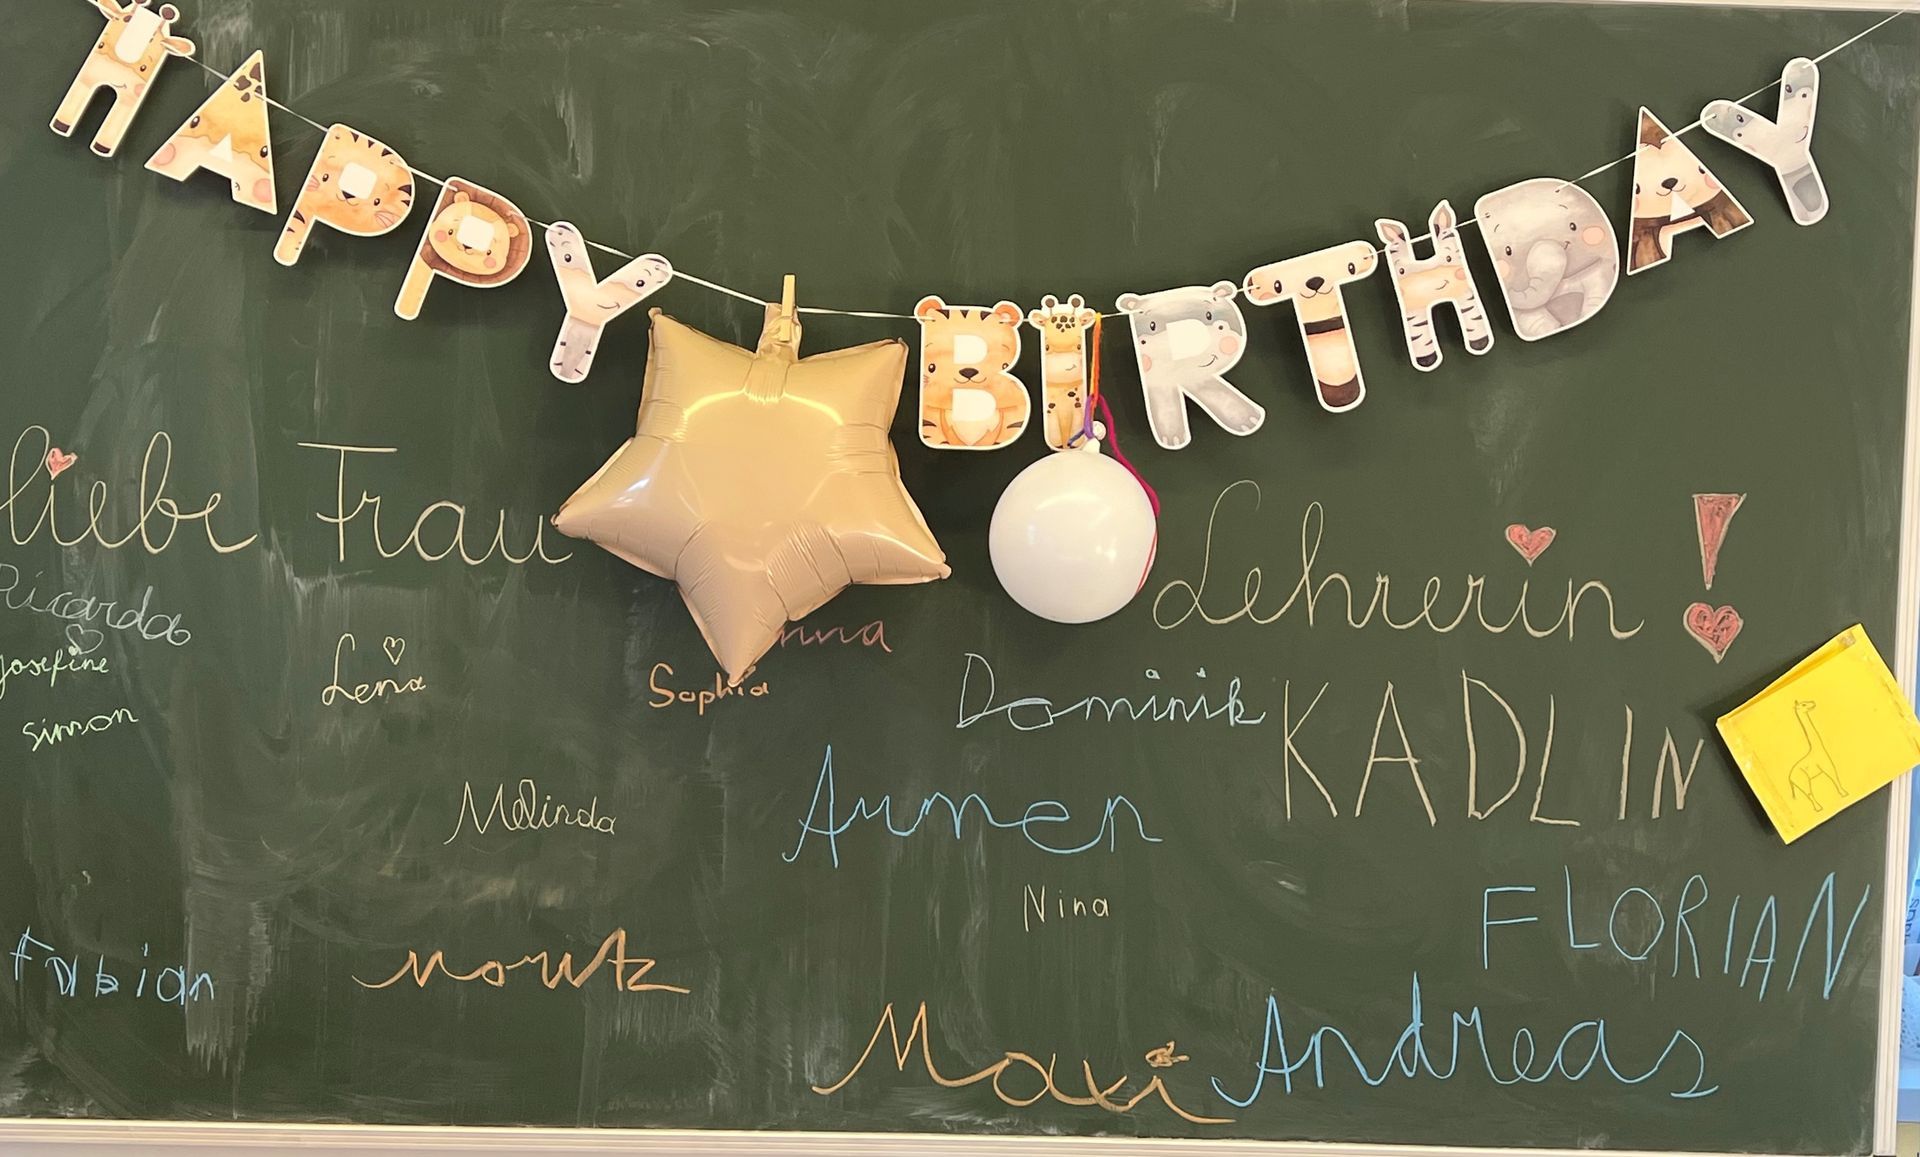 HAPPY BIRTHDAY
liebe Frau Lehrerin!
Ricarda
Josefine
Simon
Lena
Sophia
Dominik
KADLIN
Melinda
Aumer
Nina
FLORIAN
Fabian
Moritz
Maxi
Andreas